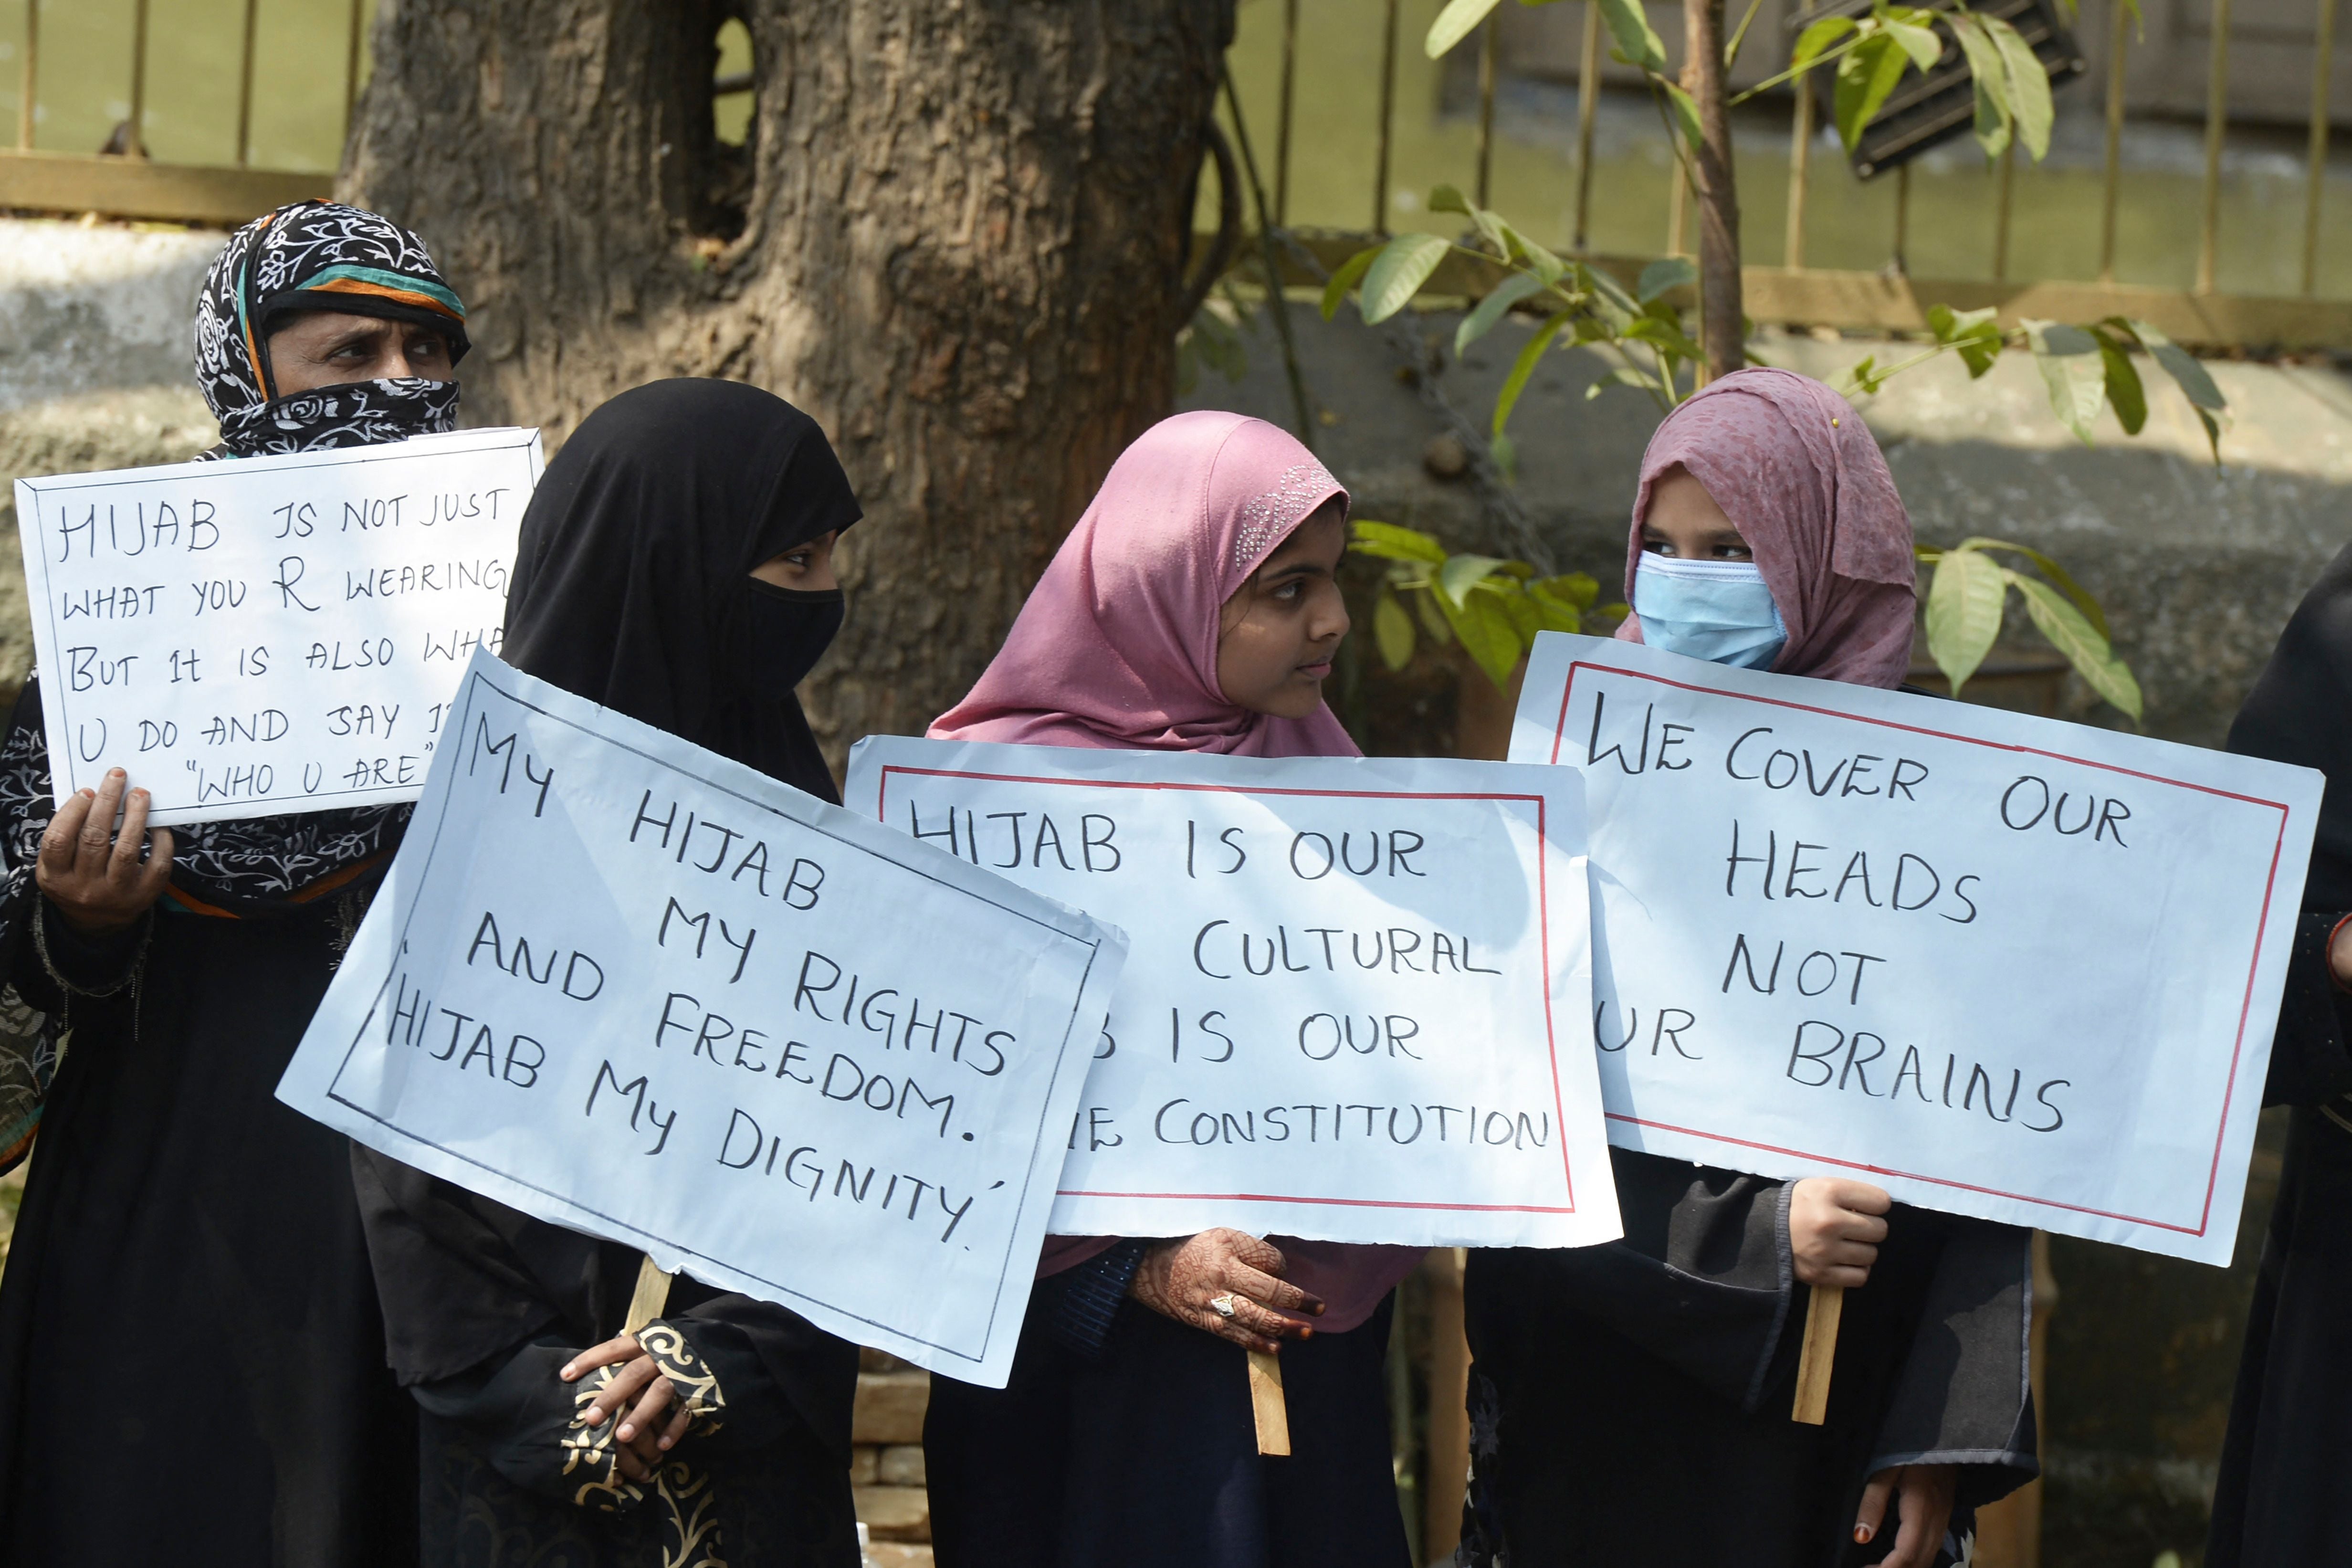 HIJAB IS NOT JUST
WHAT YOU R WEARING
BUT It IS ALSO
U DO AND SAY
"WHO U ARE"
MY HIJAB
MY RIGHTS
AND FREEDOM.
HIJAB MY DIGNITY.'
HIJAB IS OUR
CULTURAL
IS OUR
CONSTITUTION
WE COVER OUR
HEADS
NOT
BRAINS